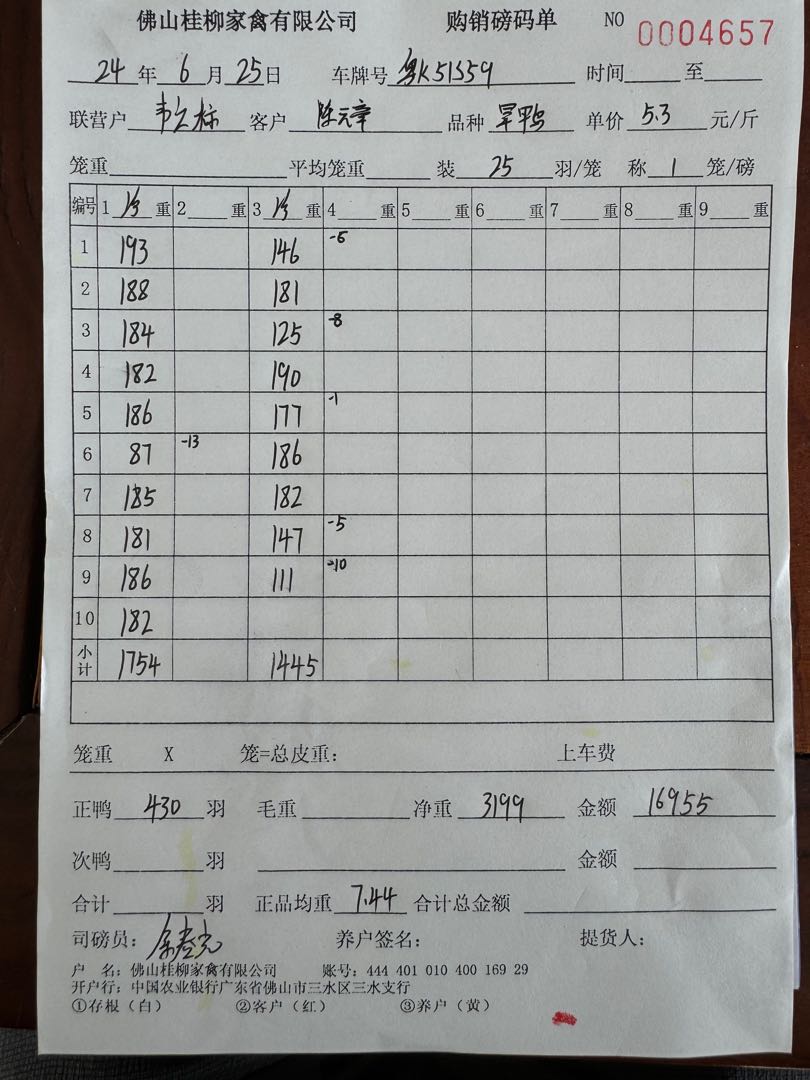 佛山桂柳家禽有限公司 购销磅码单 NO 0004657
24 年 6 月 25 日 车牌号 粤K51559 时间 至
联营户 韦立标 客户 陈元章 品种 旱鸭 单价 5.3 元/斤
笼重 平均笼重 装 25 羽/笼 称 1 笼/磅
编号 1 净 重 2 重 3 净 重 4 重 5 重 6 重 7 重 8 重 9 重
1 193 146 -6
2 188 181
3 184 125 -8
4 182 190
5 186 177 -1
6 87 -13 186
7 185 182
8 181 147 -5
9 186 111 -10
10 182
小计 1754 1445
笼重 X 笼=总皮重: 上车费
正鸭 430 羽 毛重 净重 3199 金额 16955
次鸭 羽 金额
合计 羽 正品均重 7.44 合计总金额
司磅员: 养户签名: 提货人:
户 名: 佛山桂柳家禽有限公司 账号: 444 401 010 400 169 29
开户行: 中国农业银行广东省佛山市三水区三水支行
①存根（白） ②客户（红） ③养户（黄）